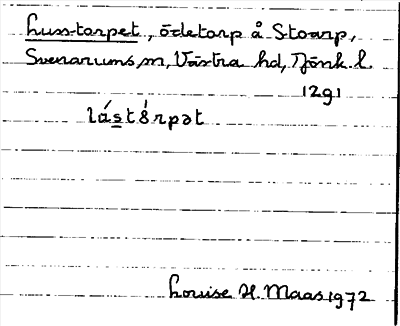 Luss-torpet, ödetorp å Stoarp,
Svenarums, sn, Västra hd, Jönk. l.
1291
lást8́rpət
Louise H. Maas 1972